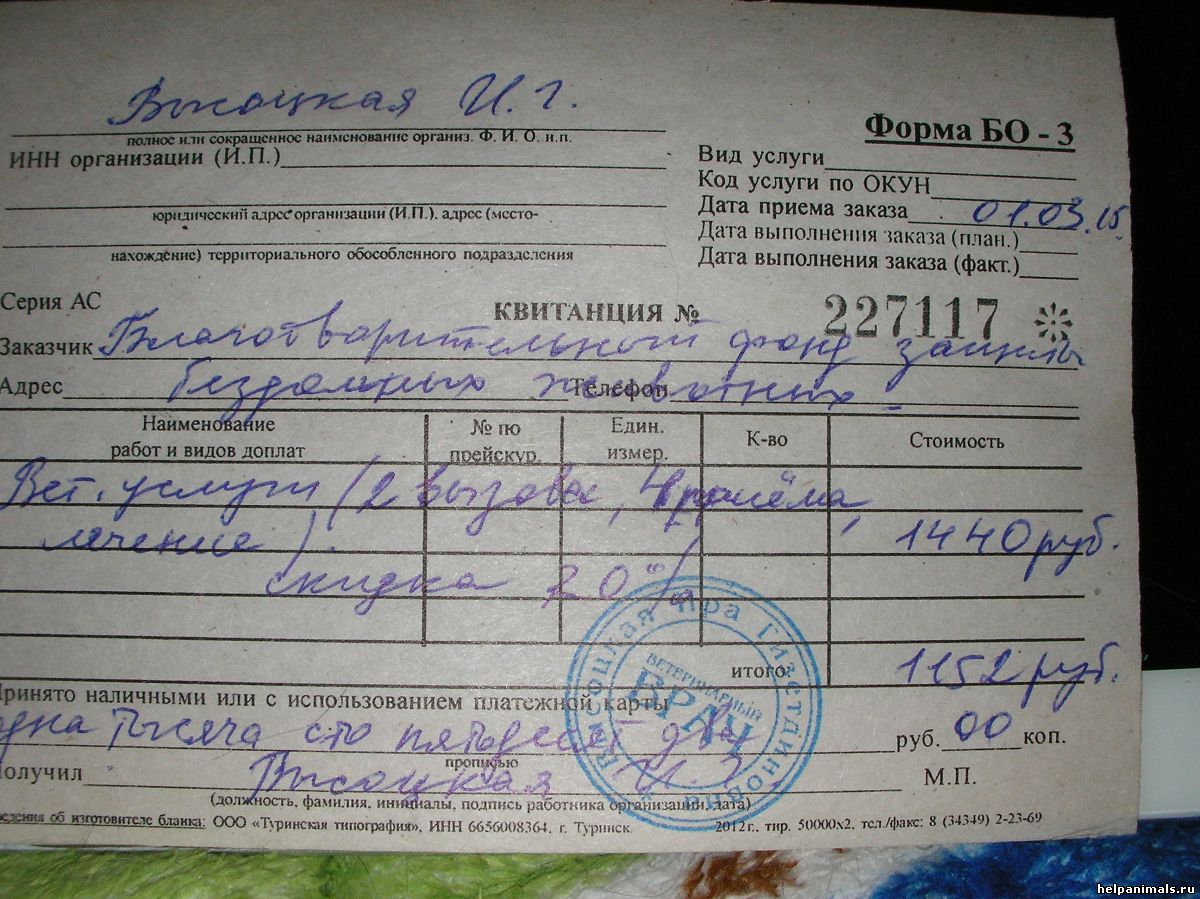 Высоцкая И. Г.
полное или сокращенное наименование организ. Ф. И. О. и.п.
Форма БО - 3
ИНН организации (И.П.)
Вид услуги
Код услуги по ОКУН
юридический адрес организации (И.П.). адрес (место-
Дата приема заказа 01.03.15.
Дата выполнения заказа (план.)
нахождение) территориального обособленного подразделения
Дата выполнения заказа (факт.)
Серия АС
КВИТАНЦИЯ № 227117
Заказчик Благотворительный фонд защиты
Адрес бездомных животных Телефон
Наименование работ и видов доплат
№ по прейскур.
Един. измер.
К-во
Стоимость
Вет. услуги (2 вызова, 4 приёма,
лечение). 1440 руб.
скидка 20%
итого: 1152 руб.
Принято наличными или с использованием платежной карты
одна тысяча сто пятьдесят два руб. 00 коп.
прописью
Получил Высоцкая И. Г. М.П.
(должность, фамилия, инициалы, подпись работника организации, дата)
Сведения об изготовителе бланка: ООО «Туринская типография», ИНН 6656008364, г. Туринск. 2012 г., тир. 50000х2, тел./факс: 8 (34349) 2-23-69
Высоцкая Ира Гизетдиновна
ВЕТЕРИНАРНЫЙ
ВРАЧ
helpanimals.ru